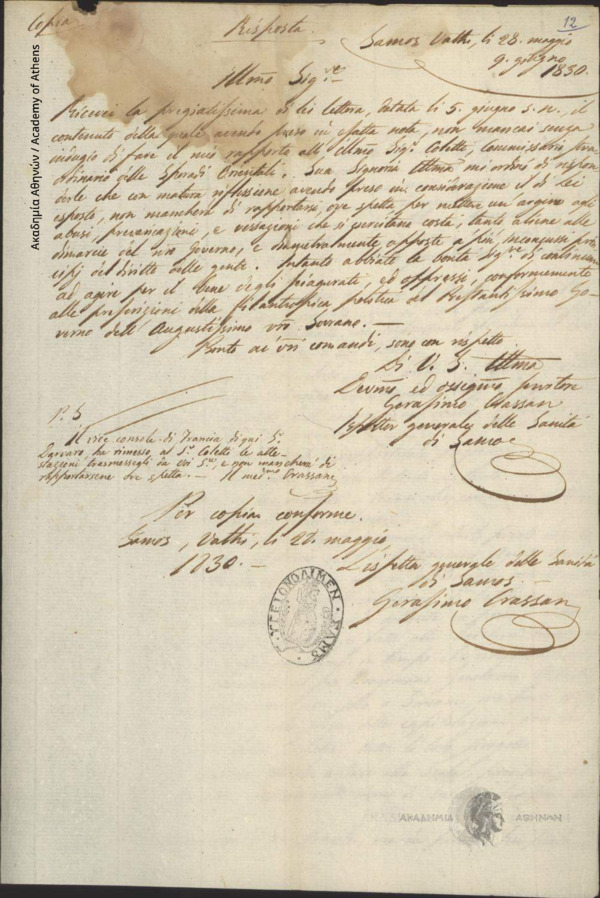 Copia
Risposta
12
Samos Vathi, li 28. maggio
9. giugno
1830.
Illmo Sigre
Ricevei la pregiatissima di lei lettera, datata li 5. giugno s. n., il
contenuto della quale avendo preso in esatta nota, non mancai senza
indugio di fare il mio rapporto all' Illmo Sigr. Colette, Commissario stra
ordinario delle Sporadi Orientali. Sua Signoria Illma mi ordinò di rispon
derle che con matura riflessione avendo preso in considerazione il di Lei
esposto, non mancherà di rapportarsi, ove spetta per mettere un argine agli
abusi, prevaricazioni, e vessazioni che si esercitano costà, tanto aliene alle
dimarcie del nro Governo, e diametralmente opposte a più inconcussi prin
cipj del diritto delle genti. Intanto abbiate la bontà Sigre di continuare
ad agire per il bene degli sciagurati, ed oppressi, conformemente
alle prescrizioni della filantropica politica del Prestantissimo Go-
verno dell' Augustissimo vro Sovrano. —
Pronto ai vri comandi, sono con rispetto
Di V. S. Illma
Devmo, ed ossequio servitore
Gerasimo Crassan
Ispettor generale della Sanità
di Samos
P. S
Il vice console di Francia di qui Sr.
ha rimesso al Sr. Coletti le atte-
stazioni trasmessegli da voi Sre, e non mancherà di
rapportarsene ove spetta. — Il medmo Crassan
Per copia conforme.
Samos, Vathi, li 28. maggio
1830. —
L'ispettor generale della Sanità
di Samos
Gerasimo Crassan
Ακαδημία Αθηνών / Academy of Athens
ΑΚΑΔΗΜΙΑ ΑΘΗΝΩΝ